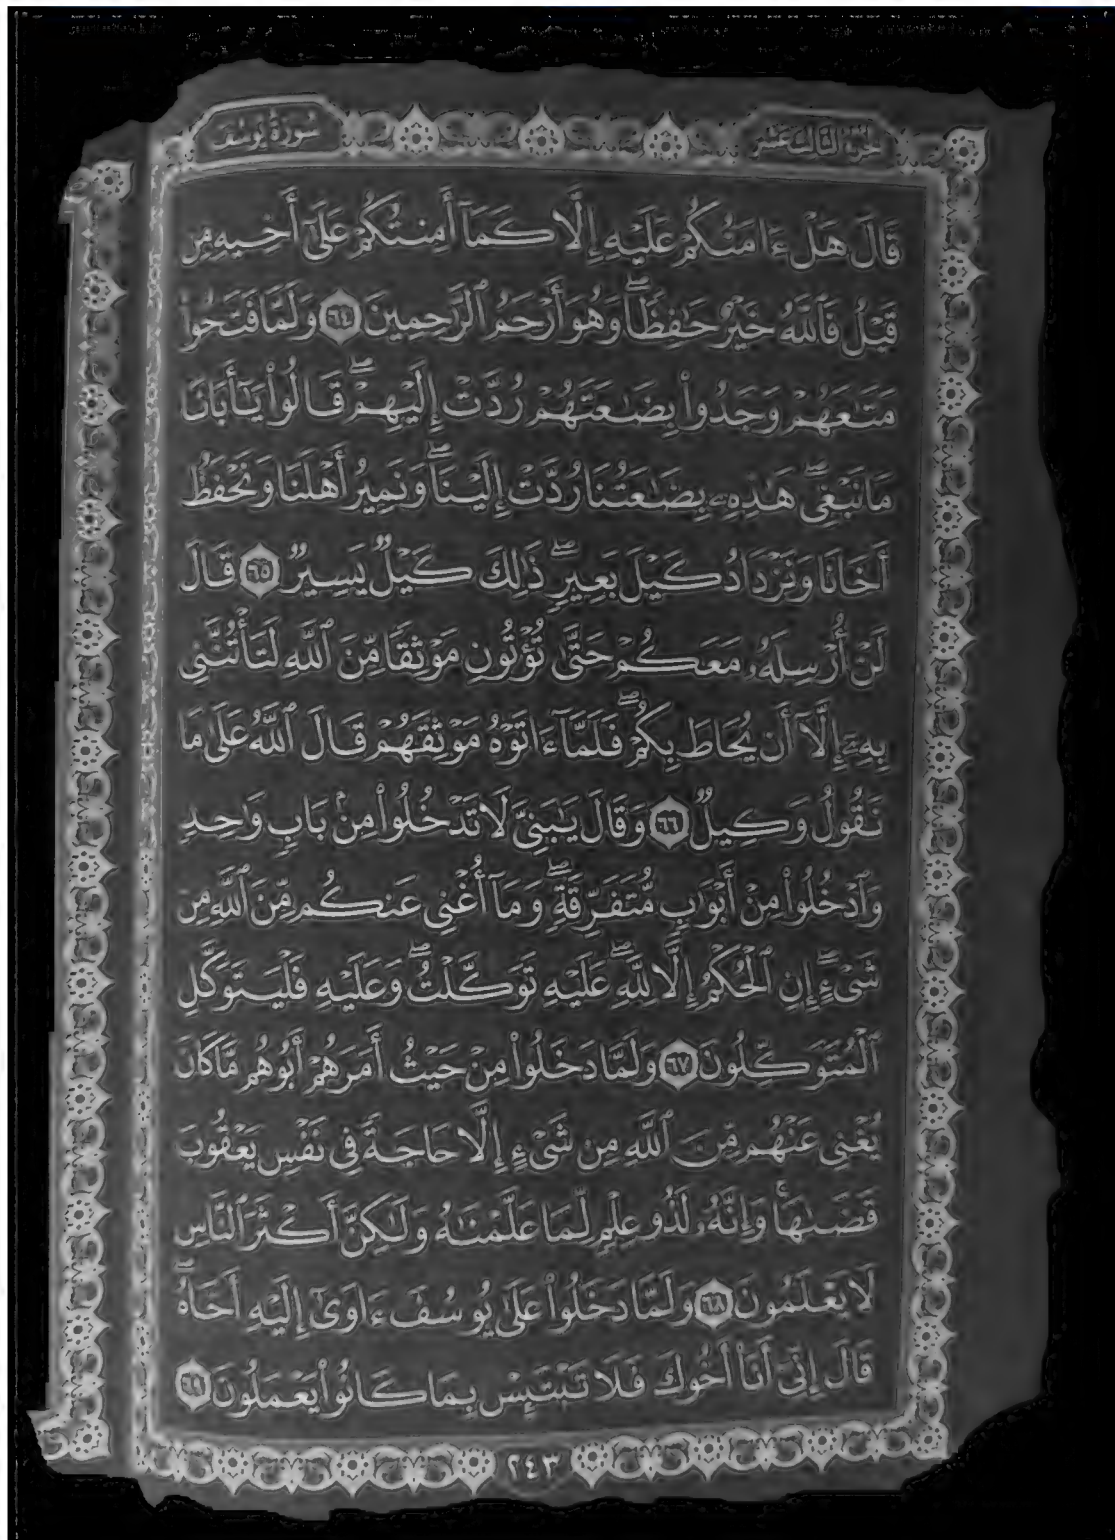 الجزء الثالث عشر
سورة يوسف
قَالَ هَلْ ءَامَنُكُمْ عَلَيْهِ إِلَّا كَمَآ أَمِنتُكُمْ عَلَىٰٓ أَخِيهِ مِن
قَبْلُ فَٱللَّهُ خَيْرٌ حَٰفِظًاۖ وَهُوَ أَرْحَمُ ٱلرَّٰحِمِينَ ٦٤ وَلَمَّا فَتَحُوا۟
مَتَٰعَهُمْ وَجَدُوا۟ بِضَٰعَتَهُمْ رُدَّتْ إِلَيْهِمْۖ قَالُوا۟ يَٰٓأَبَانَا
مَا نَبْغِىۖ هَٰذِهِۦ بِضَٰعَتُنَا رُدَّتْ إِلَيْنَاۖ وَنَمِيرُ أَهْلَنَا وَنَحْفَظُ
أَخَانَا وَنَزْدَادُ كَيْلَ بَعِيرٍۖ ذَٰلِكَ كَيْلٌ يَسِيرٌ ٦٥ قَالَ
لَنْ أُرْسِلَهُۥ مَعَكُمْ حَتَّىٰ تُؤْتُونِ مَوْثِقًا مِّنَ ٱللَّهِ لَتَأْتُنَّنِى
بِهِۦٓ إِلَّآ أَن يُحَاطَ بِكُمْۖ فَلَمَّآ ءَاتَوْهُ مَوْثِقَهُمْ قَالَ ٱللَّهُ عَلَىٰ مَا
نَقُولُ وَكِيلٌ ٦٦ وَقَالَ يَٰبَنِىَّ لَا تَدْخُلُوا۟ مِنۢ بَابٍ وَٰحِدٍ
وَٱدْخُلُوا۟ مِنْ أَبْوَٰبٍ مُّتَفَرِّقَةٍۖ وَمَآ أُغْنِى عَنكُم مِّنَ ٱللَّهِ مِن
شَىْءٍۖ إِنِ ٱلْحُكْمُ إِلَّا لِلَّهِۖ عَلَيْهِ تَوَكَّلْتُۖ وَعَلَيْهِ فَلْيَتَوَكَّلِ
ٱلْمُتَوَكِّلُونَ ٦٧ وَلَمَّا دَخَلُوا۟ مِنْ حَيْثُ أَمَرَهُمْ أَبُوهُم مَّا كَانَ
يُغْنِى عَنْهُم مِّنَ ٱللَّهِ مِن شَىْءٍ إِلَّا حَاجَةً فِى نَفْسِ يَعْقُوبَ
قَضَىٰهَاۚ وَإِنَّهُۥ لَذُو عِلْمٍ لِّمَا عَلَّمْنَٰهُ وَلَٰكِنَّ أَكْثَرَ ٱلنَّاسِ
لَا يَعْلَمُونَ ٦٨ وَلَمَّا دَخَلُوا۟ عَلَىٰ يُوسُفَ ءَاوَىٰٓ إِلَيْهِ أَخَاهُۖ
قَالَ إِنِّىٓ أَنَا۠ أَخُوكَ فَلَا تَبْتَئِسْ بِمَا كَانُوا۟ يَعْمَلُونَ ٦٩
٢٤٣